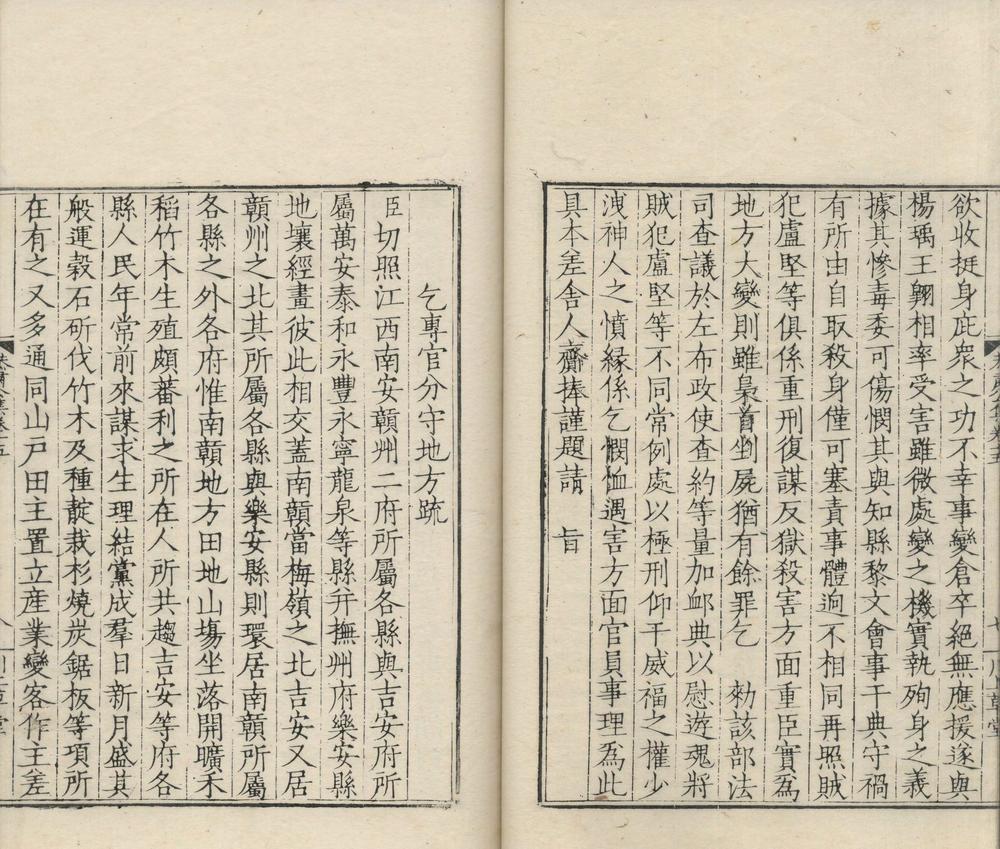 欲收挺身庇衆之功不幸事變倉卒絕無應援遂與
楊瑀王翺相率受害雖微處變之機實執殉身之義
據其慘毒委可傷憫其與知縣黎文會事干典守禍
有所由自取殺身僅可塞責事體逈不相同再照賊
犯盧堅等俱係重刑復謀反獄殺害方面重臣實爲
地方大變則雖梟首剉屍猶有餘罪乞　勑該部法
司查議於左布政使查約等量加䘏典以慰遊魂將
賊犯盧堅等不同常例處以極刑仰干威福之權少
洩神人之憤縁係乞憫恤遇害方面官員事理爲此
具本差舍人齎捧謹題請　旨
乞專官分守地方疏
臣切照江西南安贛州二府所屬各縣與吉安府所
屬萬安泰和永豐永寧龍泉等縣幷撫州府樂安縣
地壤經畫彼此相交蓋南贛當梅嶺之北吉安又居
贛州之北其所屬各縣與樂安縣則環居南贛所屬
各縣之外各府惟南贛地方田地山塲坐落開曠禾
稻竹木生殖頗蕃利之所在人所共趨吉安等府各
縣人民年常前來謀求生理結黨成羣日新月盛其
般運穀石斫伐竹木及種靛栽杉燒炭鋸板等項所
在有之又多通同山戶田主置立産業變客作主差